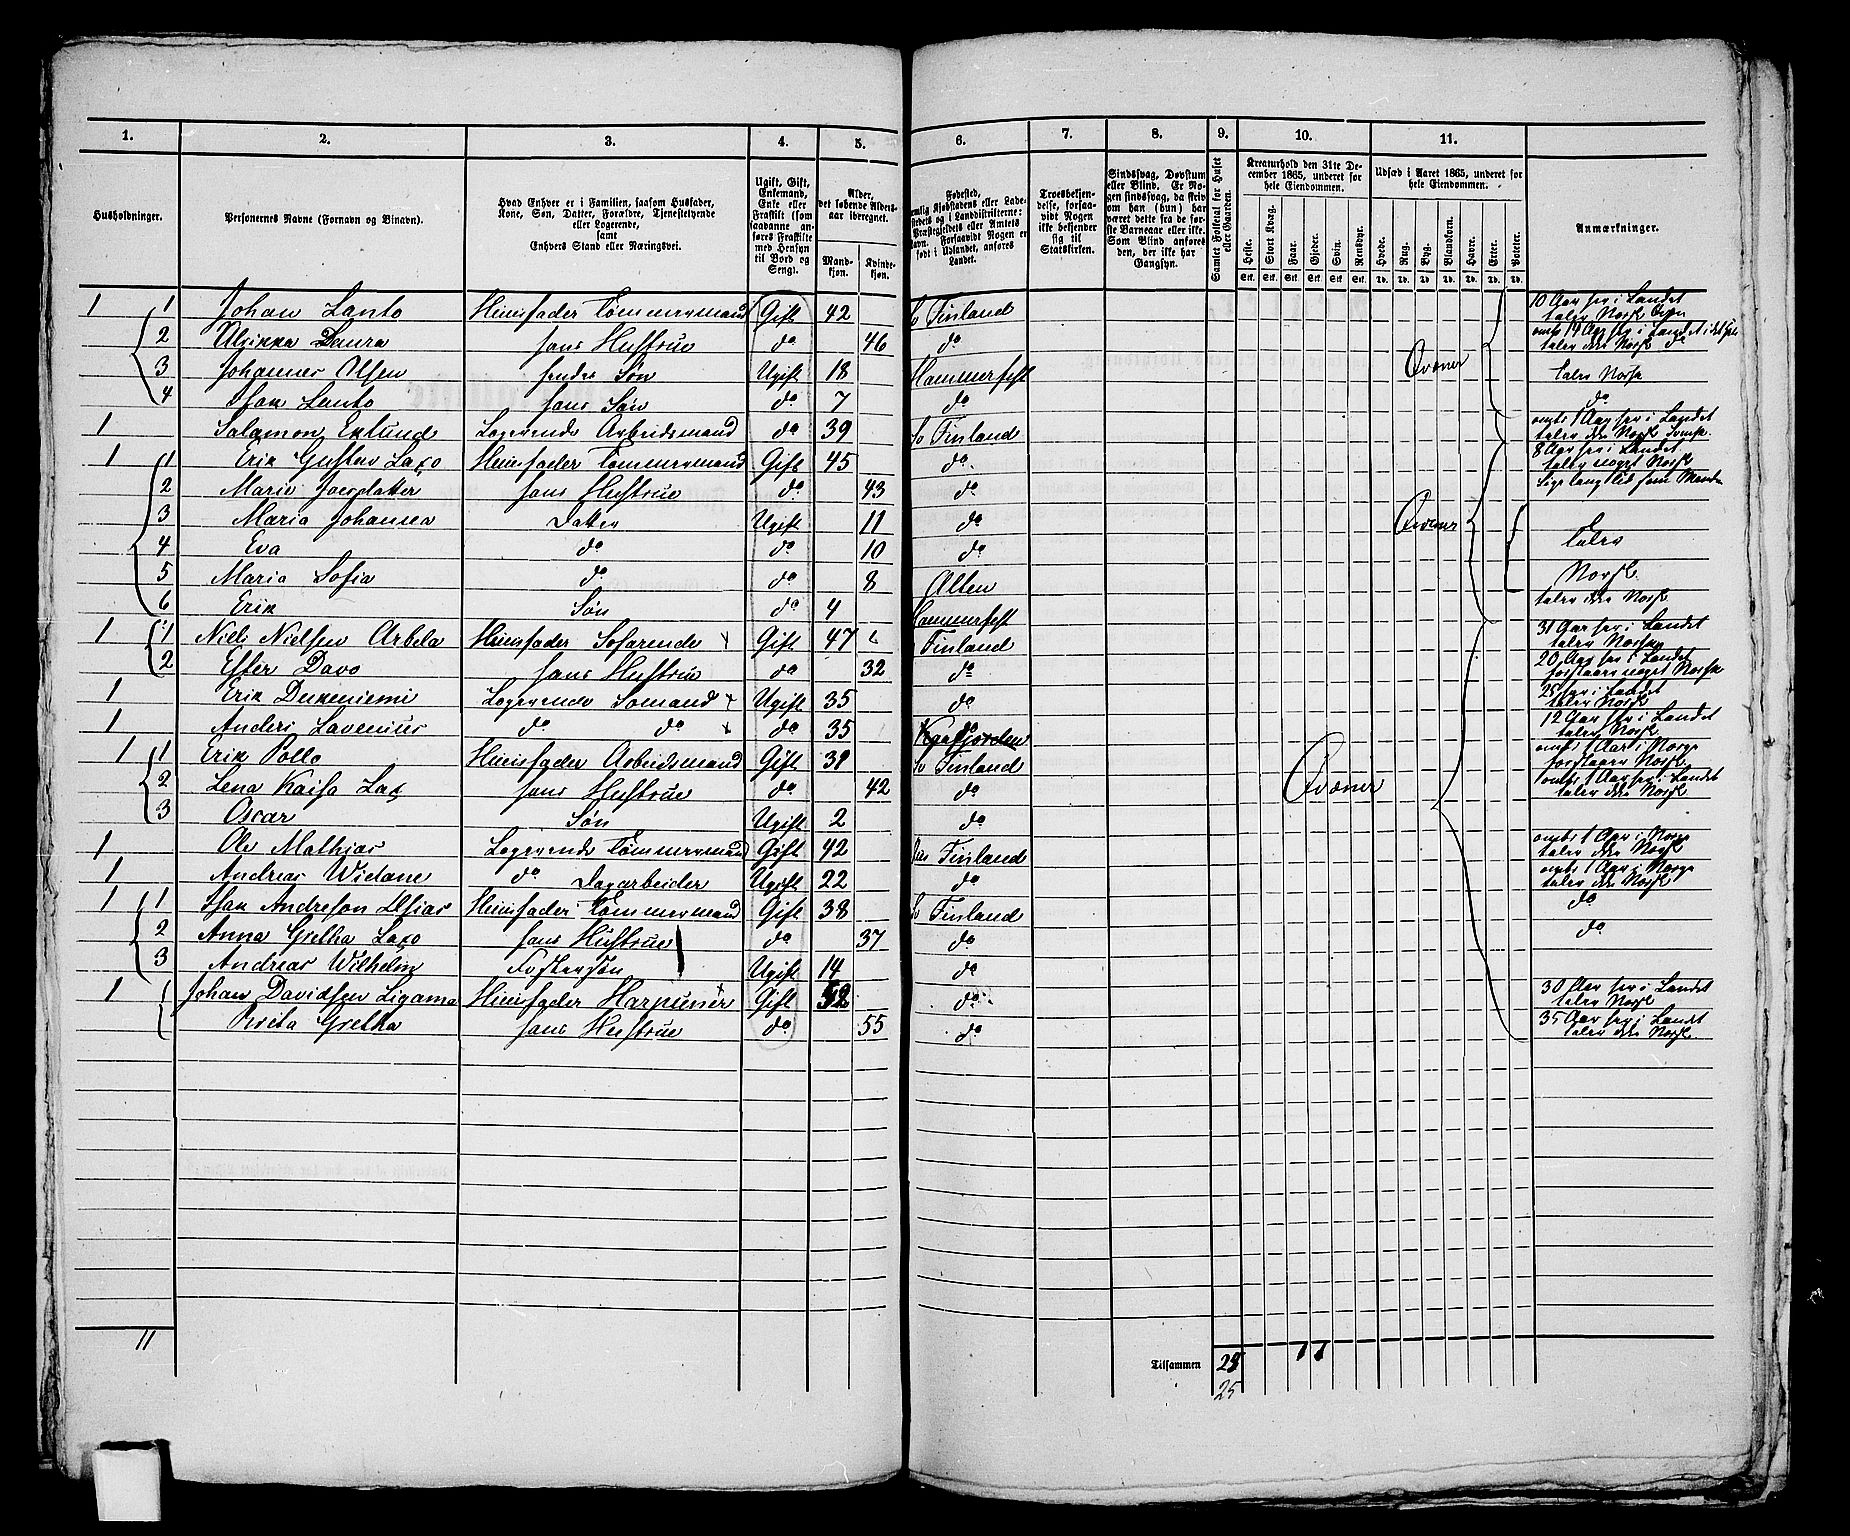 1. 2. 3. 4. 5. 6. 7. 8. 9. 10. 11.
Husholdninger.
Personernes Navne (Fornavn og Binavn).
Hvad Enhver er i Familien, saasom Husfader, Kone, Søn, Datter, Forældre, Tjenestetyende eller Logerende, samt Enhvers Stand eller Næringsvei.
Ugift, Gift, Enkemand, Enke eller Fraskilt (som saadanne anføres Fraskilte med Hensyn til Bord og Seng).
Alder, det løbende Alders-aar iberegnet.
Mand-kjøn. Kvinde-kjøn.
Fødested, Kjøbstadens eller Lade-stedets og i Landdistrikterne: Præstegjeldets eller Amtets Navn. Forsaavidt Nogen er født i Udlandet, anføres Landet.
Troesbekjen-delse, forsaa-vidt Nogen ikke bekjender sig til Statskirken.
Sindssvag, Døvstum eller Blind. Er No-gen sindssvag, da skriv om han (hun) har været dette fra de før-ste Barneaar eller ikke. Som Blind anføres den, der ikke har Gangsyn.
Samlet Folketal for Huset eller Gaarden.
Kreaturhold den 31te De-cember 1865, underet for hele Eiendommen.
Heste. Stort Kvæg. Faar. Gjeder. Svin. Rensdyr.
Udsæd i Aaret 1865, underet for hele Eiendommen.
Hvede. Rug. Byg. Blandkorn. Havre. Erter. Poteter.
Anmærkninger.
1 1 Johan Lanto Huusfader Tømmermand Gift 42 Finland 10 Aar her i Landet taler Norsk
2 Laura hans Hustrue do 46 do her i Landet taler ikke Norsk
3 Johannes Olsen hendes Søn Ugift 18 Hammerfest Qvæner taler Norsk
4 Isak Lanto hans Søn do 7 do do
1 Salamon Eklund Logerende Arbeidsmand do 39 Finland omtr 1 Aar her i Landet taler ikke Norsk
1 1 Erik Gustav Laxo Huusfader Tømmermand Gift 45 do 8 Aar her i Landet taler noget Norsk
2 Maria hans Hustrue do 43 do lige lang tid som Manden
3 Maria Johansen Datter Ugift 11 do Qvæner
4 Eva do do 10 do taler
5 Maria Sofia do do 8 Alten Norsk
6 Erik Søn do 4 Hammerfest taler ikke Norsk
1 1 Niels Nielsen Arbela Huusfader Søfarende Gift 47 Finland 31 Aar her i Landet taler Norsk
2 Ester Davo hans Hustrue do 32 do 20 Aar her i Landet forstaaer noget Norsk
1 Erik Logerende Sømand Ugift 35 do 25 her i Landet taler Norsk
1 Anders Lavenius do do do 35 do 12 Aar her i Landet taler Norsk
1 1 Erik Pollo Huusfader Arbeidsmand Gift 31 Finland omtr 1 Aar i Norge forstaaer Norsk
2 Lena Kaisa Lax hans Hustrue do 42 do Qvæner omtr 1 Aar her i Landet taler ikke Norsk
3 Oscar Søn Ugift 2 do
1 Ole Mathias Logerende Tømmermand Gift 42 Finland omtr 1 Aar i Norge taler ikke Norsk
1 Andreas do Dagarbeider Ugift 22 do omtr 1 Aar i Norge taler ikke Norsk
1 1 Isak Andreson Huusfader Tømmermand Gift 38 Finland do
2 Anna Gretha Laxo hans Hustrue do 37 do do
3 Andreas Wilhelm Fostersøn Ugift 14 do
1 1 Johan Davidsen Ligama Huusfader Harpunér Gift do 30 Aar her i Landet taler Norsk
Brita Gretha hans Hustrue do 55 do 35 Aar her i Landet taler ikke Norsk
11
Tilsammen
25